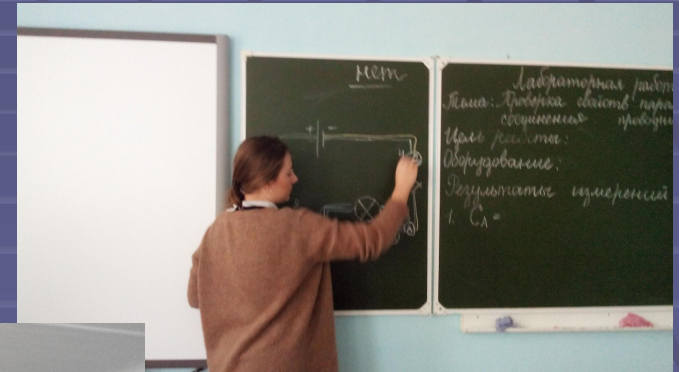 нет
Лабораторная работ
Тема: Проверка свойств пара
соединения проводни
Цель работы:
Оборудование:
Результаты измерений
1. CА =
+ -
A